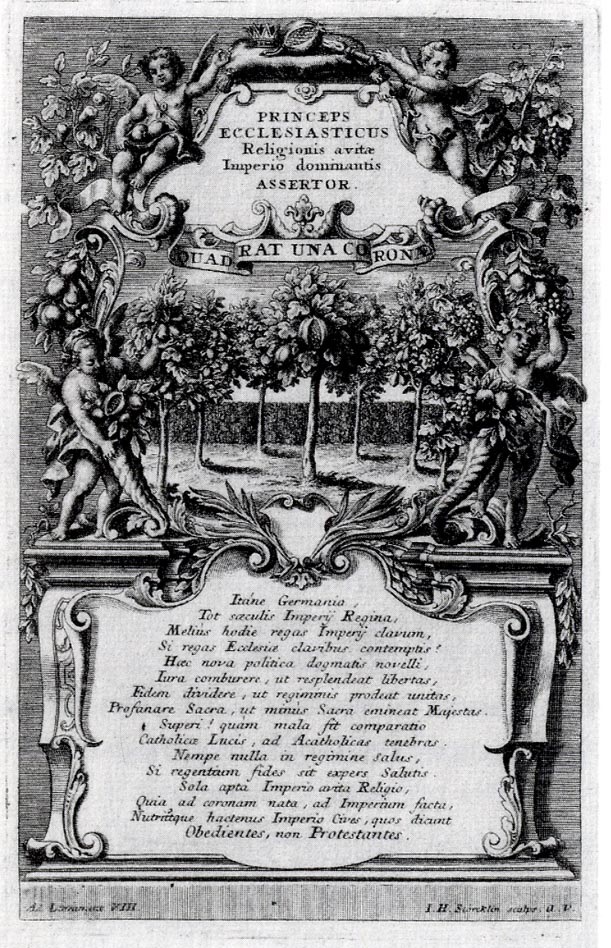 PRINCEPS
ECCLESIASTICUS
Religionis avitæ
Imperio dominantis
ASSERTOR.
QUADRAT UNA CORONA
Itáne Germania,
Tot sæculis Imperÿ Regina,
Melius hodie regas Imperÿ clavum,
Si regas Ecclesiæ clavibus contemptis?
Hæc nova politica dogmatis novelli,
Iura comburere, ut resplendeat libertas,
Fidem dividere, ut regiminis prodeat unitas,
Profanare Sacra, ut minus Sacra emineat Majestas.
Superi! quam mala fit comparatio
Catholicæ Lucis, ad Acatholicas tenebras.
Nempe nulla in regimine salus,
Si regentium fides sit expers Salutis.
Sola apta Imperio avita Religio,
Quia ad coronam nata, ad Imperium facta,
Nutritque hactenus Imperio Cives, quos dicunt
Obedientes, non Protestantes.
VIII.
I. H. Störcklin sculps. A. V.